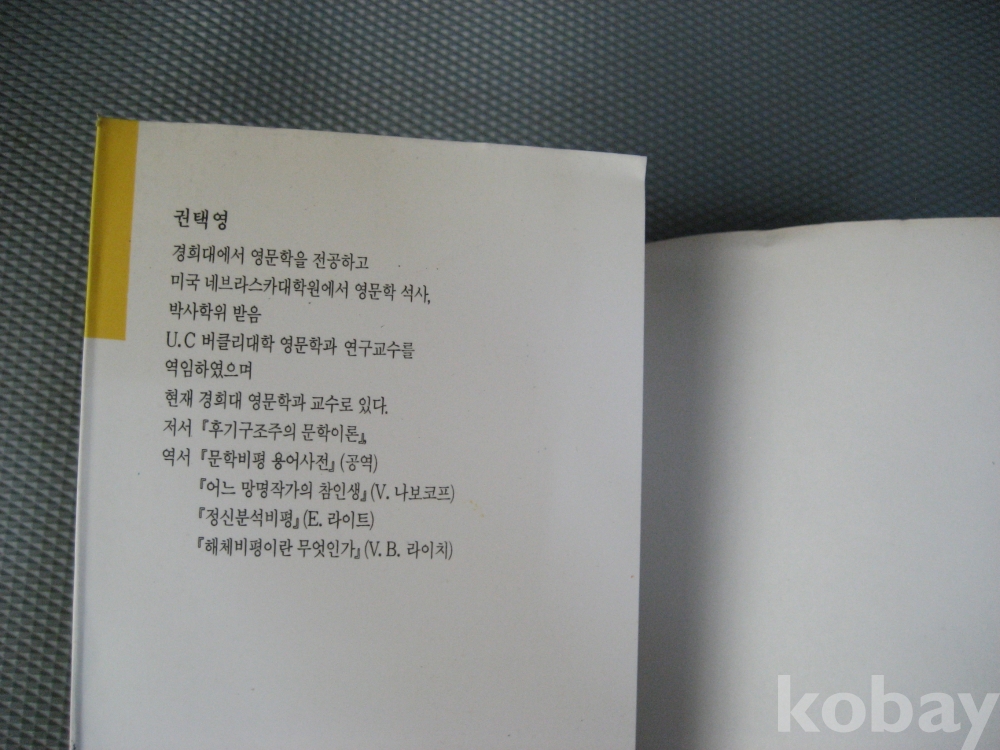 권택영
경희대에서 영문학을 전공하고
미국 네브라스카대학원에서 영문학 석사,
박사학위 받음
U.C 버클리대학 영문학과 연구교수를
역임하였으며
현재 경희대 영문학과 교수로 있다.
저서 『후기구조주의 문학이론』,
역서 『문학비평 용어사전』 (공역)
『어느 망명작가의 참인생』 (V. 나보코프)
『정신분석비평』 (E. 라이트)
『해체비평이란 무엇인가』 (V. B. 라이치)
kobay